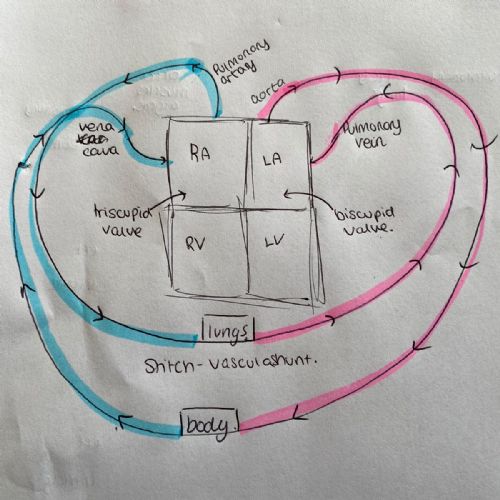 Pulmonary
artary
aorta
vena
cava
Pulmonary
vein
RA
LA
triscupid
valve
biscupid
valve.
RV
LV
lungs
Shitch-vasculashunt.
body.